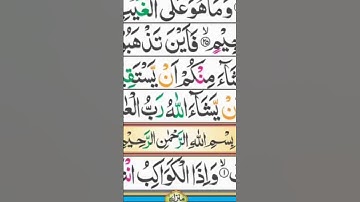 وَمَا هُوَ عَلَى الْغَيْبِ
فَاَيْنَ تَذْهَبُ
مِنْكُمْ اَنْ يَّسْتَقِ
يَّشَآءَ اللّٰهُ رَبُّ الْعٰ
بِسْمِ اللّٰهِ الرَّحْمٰنِ الرَّحِيْمِ
وَاِذَا الْكَوَاكِبُ